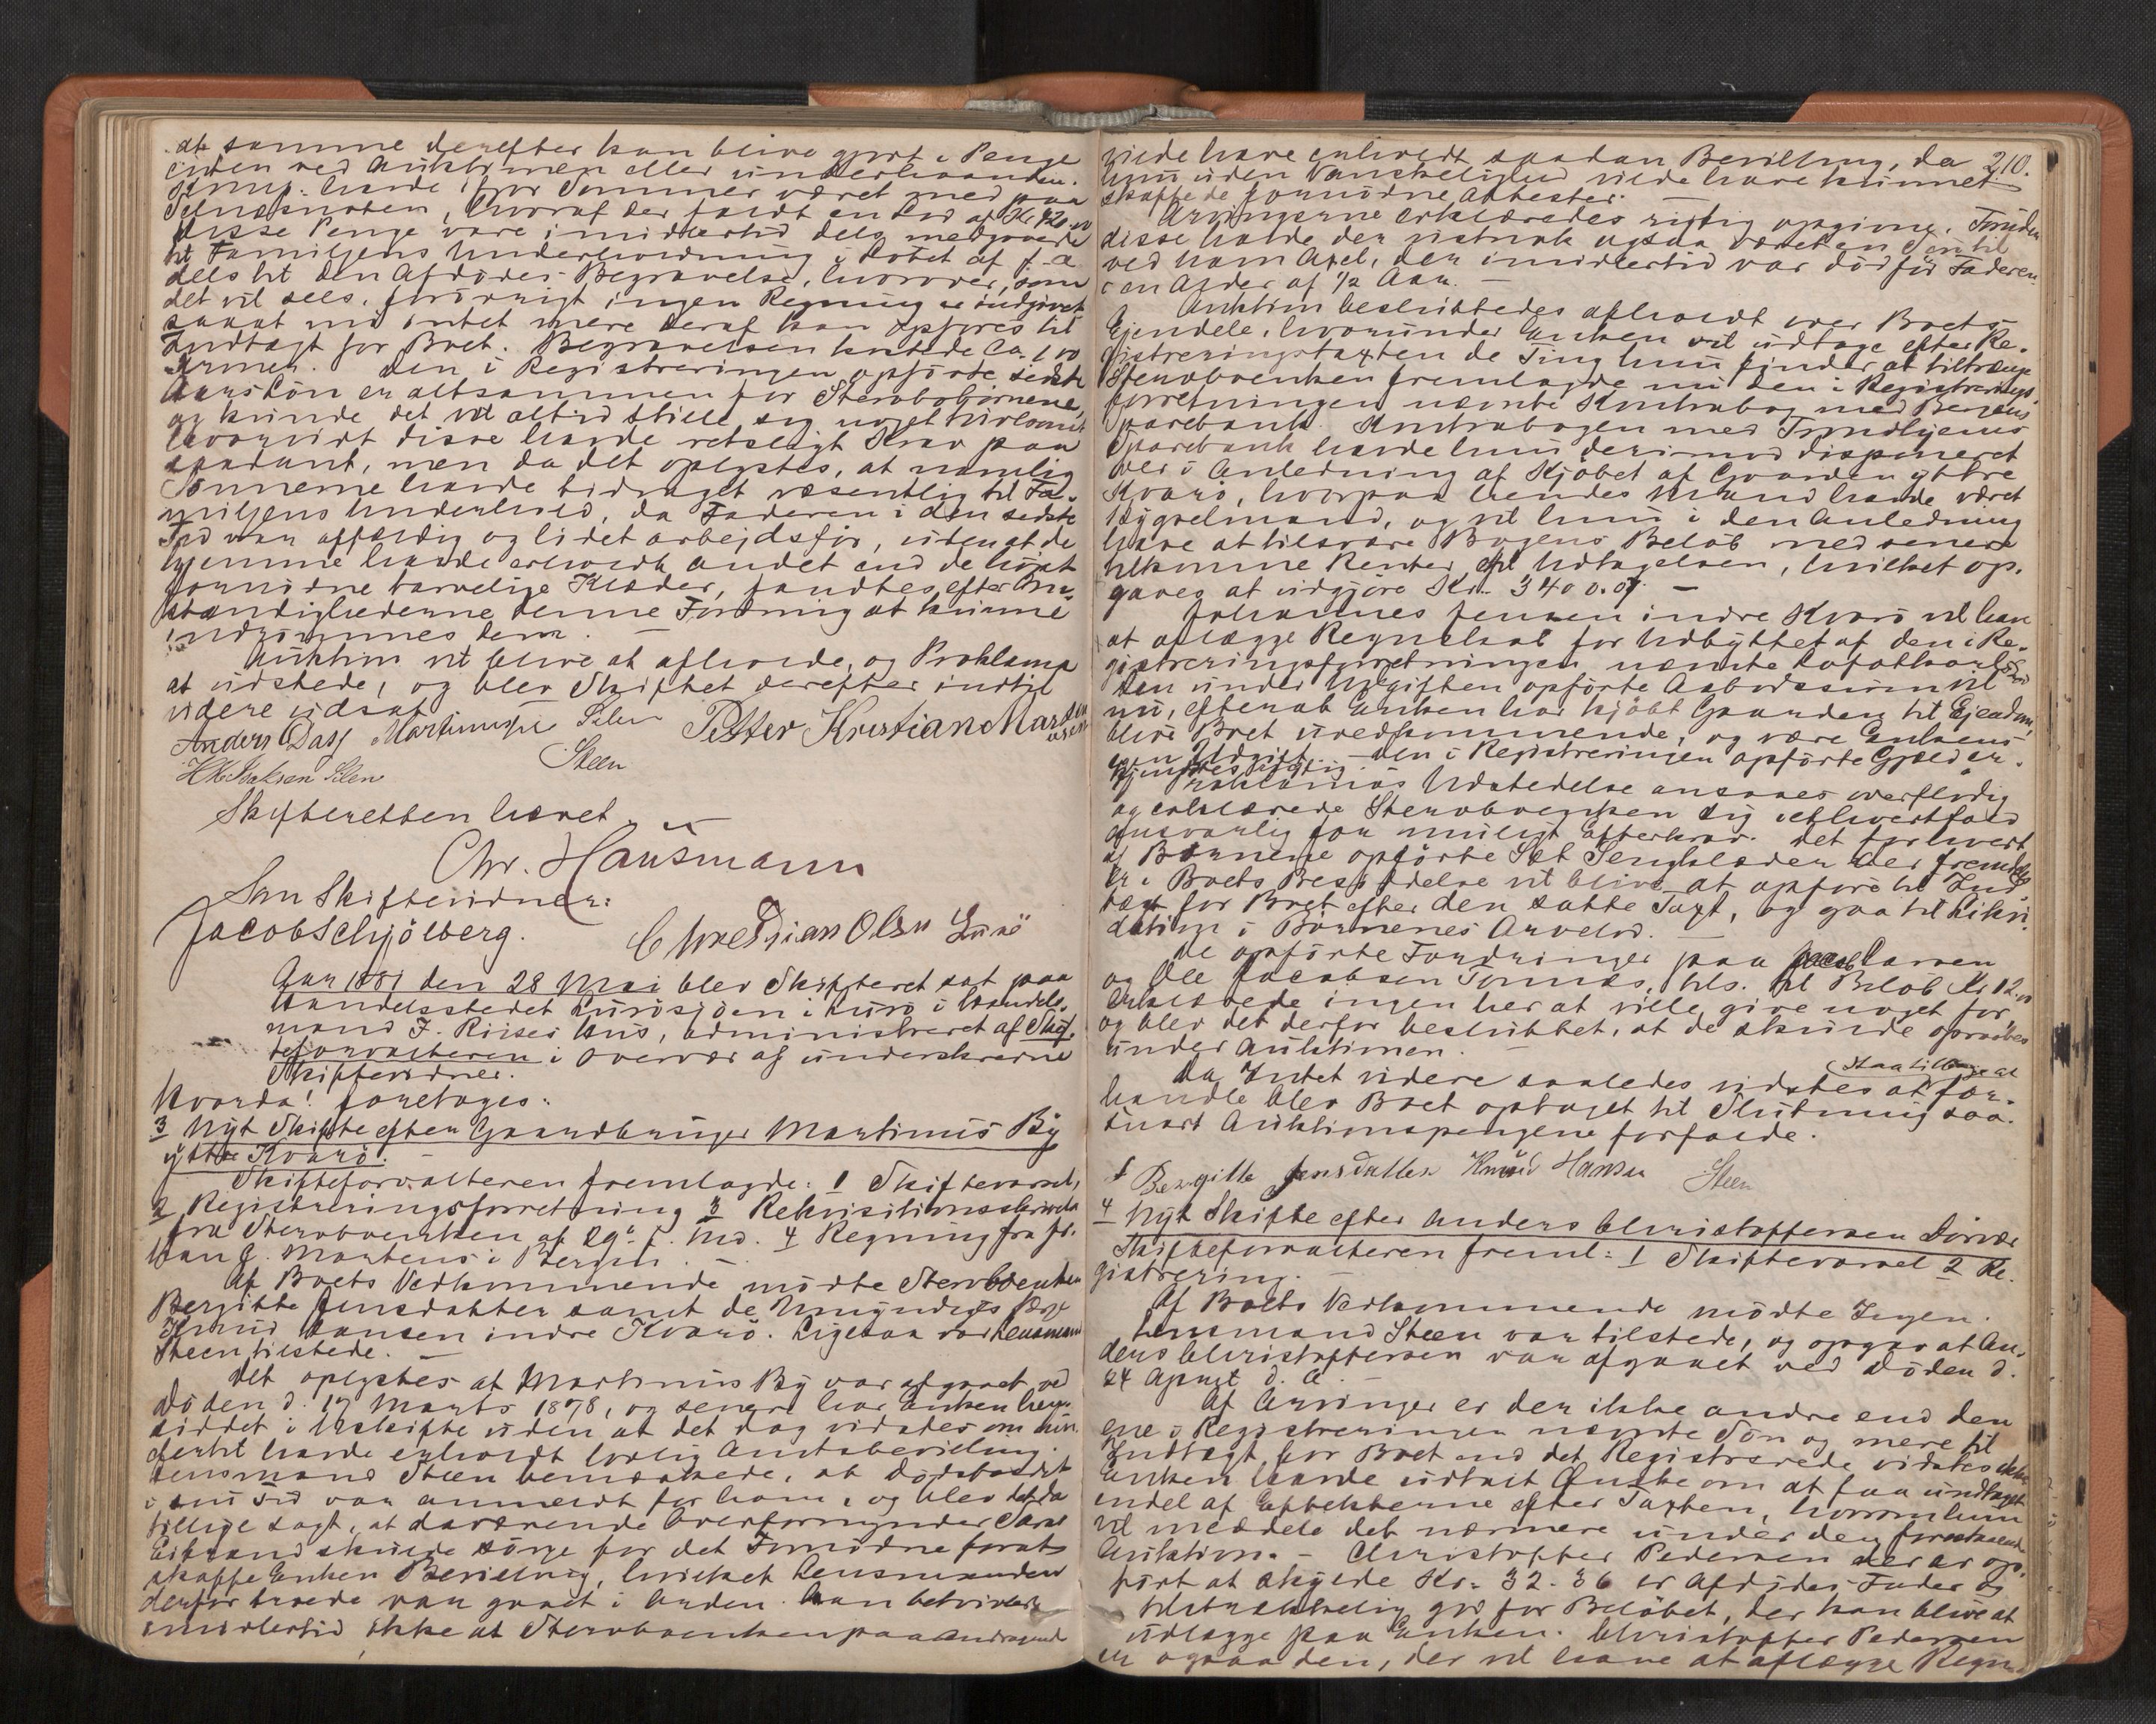 at samme derefter kan blive gjort i Penge
enten ved Auktionen eller underhaanden.
havde i for Sommer været med paa
hvoraf der faldt en Lod af Kr 420.00
Disse Penge vare imidlertid dels medgaaede
til Familjens Underholdning i Løbet af f. A.
dels til den Afdødes Begravelse, hvorover, som
det vil sees, forøvrigt ingen Regning er indgivet
saaat nu intet mere deraf kan opføres til
Indtægt for Boet. Begravelsen kostede Ca. 100
Kroner. Den i Registreringen opførte sidste
Aars Løn er altsammen for Stervbobørnene,
og kunde det vel altid stille sig noget tvivlsomt
hvorvidt disse havde retsligt Krav paa
saadant, men da det oplystes, at navnlig
Sønnerne havde bidraget væsentlig til Fa-
miljens Underhold, da Faderen i den sidste
Tid var affældig og lidet arbejdsfør, uden at de
hjemme havde erholdt andet end de højst
fornødne tarvelige Klæder, fandtes efter Om-
stændighederne denne Fordring at kunne
indrømmes dem.
Auktion vil blive at afholde, og Proklama
at udstede, og blev Skiftet derefter indtil
videre udsat
Anders Dass Martinussen Selen Petter Kristian Martinussen
H K Isaksen Selen Steen
Skifteretten hævet.
Chr. Hausmann
Som Skiftevidner:
Jacob Schjölberg. Christian Olsen Lurö
Aar 1881 den 28 Mai blev Skifteret sat paa
Handelsstedet Lurøsjøen i Lurø i Handels-
mand J. Riises Hus, administreret af Skif-
teforvalteren i Overvær af underskrevne
Skiftevidner.
Hvorda! foretoges:
3 Nyt Skifte efter Gaardbruger Martinus By
ytre Kvarø.
Skifteforvalteren fremlagde: 1 Skiftevarsel,
2 Registreringsforretning 3 Rekvisitionsskrivelse
fra Stervboenken af 29de f. Md. 4 Regning fra Jo-
han G. Martens i Bergen.
Af Boets Vedkommende mødte Stervboenken
Bergitte Jensdatter samt de Umyndiges Værge
Knud Hansen indre Kvarø. Ligesaa var Lensmand
Steen tilstede.
Det oplystes at Martinus By var afgaaet ved
Døden d. 17 Marts 1878, og senere har Enken hen-
siddet i Uskifte uden at det dog vidstes om hun
dertil havde erholdt lovlig Amtsbevilling.
Lensmand Steen bemærkede, at Dødsfaldet
i sin Tid var anmeldt for ham, og blev det da
tillige sagt, at daværende Overformynder
skulde sørge for det Fornødne forat
skaffe Enken Bevilling, hvilket Lensmanden
derfor troede var gaaet i Orden. Han betvivlede
imidlertid ikke at Stervboenken paa Andragende
210.
vilde have erholdt saadan Bevilling, da
hun uden Vanskelighed vilde have kunnet
skaffe de fornødne Attester.
Arvingerne erklæredes rigtig opgivne. Foruden
disse havde der vistnok ogsaa været en Søn til
ved Navn Axel, der imidlertid var død før Faderen
i en Alder af 1/2 Aar.
Auktion besluttedes afholdt over Boets
Ejendele, hvorunder Enken vil udtage efter Re-
gistreringstaxten de Ting hun finder at tiltrænge.
Stervboenken fremlagde nu den i Registrerings-
forretningen nævnte Kontrabog med Bergens
Sparebank. Kontrabogen med Trondhjems
Sparebank havde hun derimod disponeret
over i Anledning af Kjøbet af Gaarden ytre
Kvarø, hvorpaa hendes Mand havde været
Bygselmand, og vil hun i den Anledning
have at tilsvare Bogens Beløb med senere
tilkomne Renter til Udtagelsen, hvilket op-
gaves at udgjøre Kr. 3400.07.
Johannes Jensen indre Kvarø vil have
at aflægge Regnskab for Udbyttet af den i Re-
gistreringsforretningen nævnte
Den under Udgiften opførte Aabodssum vil
nu, efterat Enken har kjøbt Gaarden til Ejendom,
blive Boet uvedkommende, og være Enkens
egen Udgift. Den i Registreringen opførte Gjæld er-
kjendtes rigtig.
Proklamas Udstedelse ansaaes overflødig
og erklærede Stervboenken sig i ethvertfald
ansvarlig for muligt Efterkrav. Det for hvert
af Børnene opførte Sæt Sengklæder der fremdeles
er i Boets Besiddelse vil blive at opføre til Ind-
tægt for Boet efter den satte Taxt, og gaa til Likvi-
dation i Børnenes Arvelod.
De opførte Fordringer paa Larsen
og Ole Jacobsen Tonnes, tils. til Beløb Kr 12.00
erklærede ingen her at ville give noget for
og blev det derfor besluttet, at de skulde opraabes
under Auktionen.
Da Intet videre saaledes vidstes at for-
handle blev Boet optaget til Slutning saa-
snart Auktionspengene forfalde.
Bergitte Jensdatter Knud Hansen Steen
4 Nyt Skifte efter Anders Christoffersen
Skifteforvalteren freml: 1 Skiftevarsel 2 Re-
gistrering.
Af Boets Vedkommende mødte Ingen.
Lensmand Steen var tilstede, og opgav at An-
ders Christoffersen var afgaaet ved Døden d.
24 April d. A.
Af Arvinger er der ikke andre end den
ene i Registreringen nævnte Søn og mere til
Indtægt for Boet end det Registrerede vidstes ikke
Enken havde udtalt Ønske om at faa undtaget
endel af Effekterne efter Taxten, hvorom hun
vil meddele det nærmere under den forestaaende
Auktion. - Christoffer Pedersen der er op-
ført at skylde Kr. 32.36 er Afdødes Fader og
tilstrækkelig god for Beløbet, der kan blive at
udlægge paa Enken. Christoffer Pedersen
er ogsaa den, der vil have at aflægge Regn-